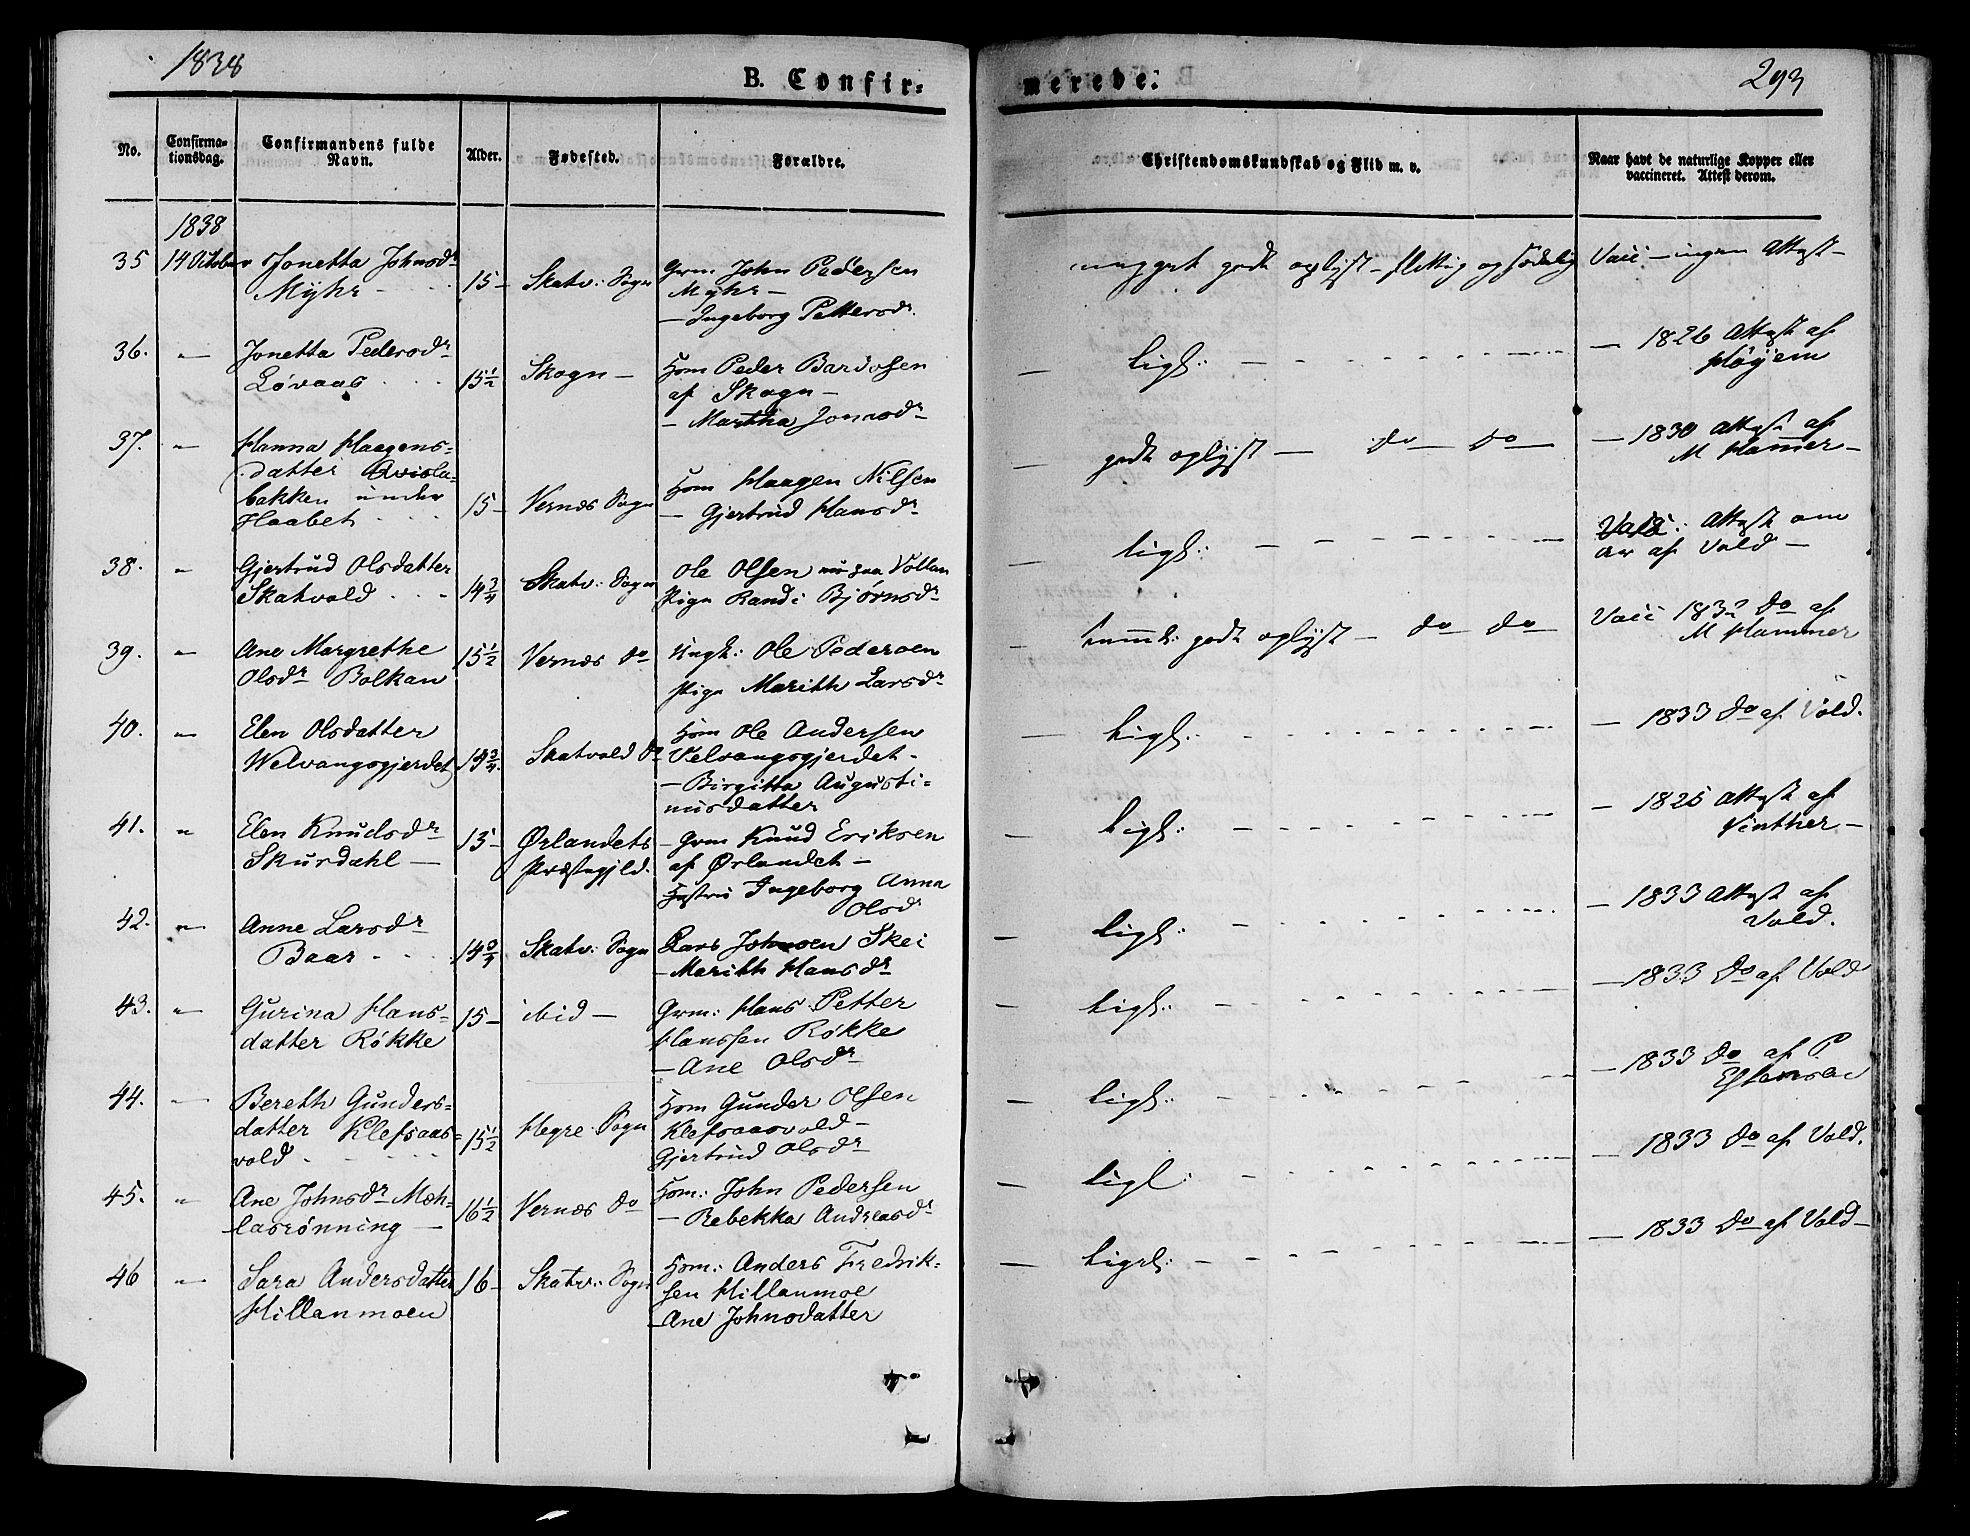 1838
B. Confir-
merede.
293
No.
Confirma-
tionsdag.
Confirmandens fulde
Navn.
Alder.
Fødested.
Forældre.
Christendomskundskab og Flid m. v.
Naar havt de naturlige Kopper eller
vaccineret. Attest derom.
1838
35 14 October Jonetta Johnsdr
Myhr - 15 - Skatv: Sogn
Grm John Pedersen
Myhr -
- Ingeborg Pettersdr
meget godt oplyst - flittig og sædelig
Vacc - ingen Attest -
36. " Jonetta Pedersdr
Løvaas 15½ Skogn -
Hom Peder Bardosen
af Skogn -
- Martha Jonasdr
- ligl: - - 1826 Attest af
Høyem
37. " Hanna Haagens-
datter Qvisla-
bakken under
Haabet 15 - Vernæs Sogn
Hom Haagen Nilsen
- Gjertrud Hansdr
- godt oplyst - do - do -
- 1830 Attest af
M Hammer -
38. " Gjertrud Olsdatter
Skatvold 14¾ Skatv: Sogn
Ole Olsen paa Vollan
Pige Randi Bjørnsdr
- ligl: -
Vacc: Attest om
ar af Vold -
39. " Ane Margrethe
Olsdr Bolkan 15½ Vernæs do
Ungk: Ole Pedersen
Pige Marith Larsdr
- temml: godt oplyst - do do -
Vacc 1832 do af
M Hammer
40. " Elen Olsdatter
Welvangsgjerdet 14¾ Skatvold do
Hom Ole Andersen
Velvangsgjerdet -
- Birgitta Augusti-
nusdatter
- ligl: - - 1833 do af Vold.
41. " Elen Knudsdr
Skurdahl - 15 - Ørlandets
Præstegjeld.
- Grm Knud Eriksen
af Ørlandet -
Hustru Ingeborg Anna
Olsdr
- ligl: - - 1825 Attest af
Vinther -
42. " Anne Larsdr
Baar 14¾ Skatv: Sogn
Lars Johnsen Skei
- Marith Hansdr
- ligl: - - 1833 Attest af
Vold.
43. " Gurina Hans-
datter Røkke 15 - ibid -
Grm: Hans Petter
Hanssen Røkke
- Ane Olsdr
- ligl: - - 1833 do af Vold
44. - Bereth Gunders-
datter Klefsaas-
vold 15½ Hegre Sogn
Hom Gunder Olsen
Klefsaasvold -
Gjertrud Olsdr
- ligl: - - 1833 do af P
Estensen
45. " Ane Johnsdr Mæh-
lasrønning - 16½ Vernæs do
Hom: John Pedersen
- Rebekka Andreasdr
- ligl: - - 1833 do af Vold.
46 " Sara Andersdatter
Hillanmoen 16 - Skatv: Sogn
Hom: Anders Fredrik-
sen Hillanmoe
- Ane Johnsdatter
- ligel: - - 1833 do af Vold -